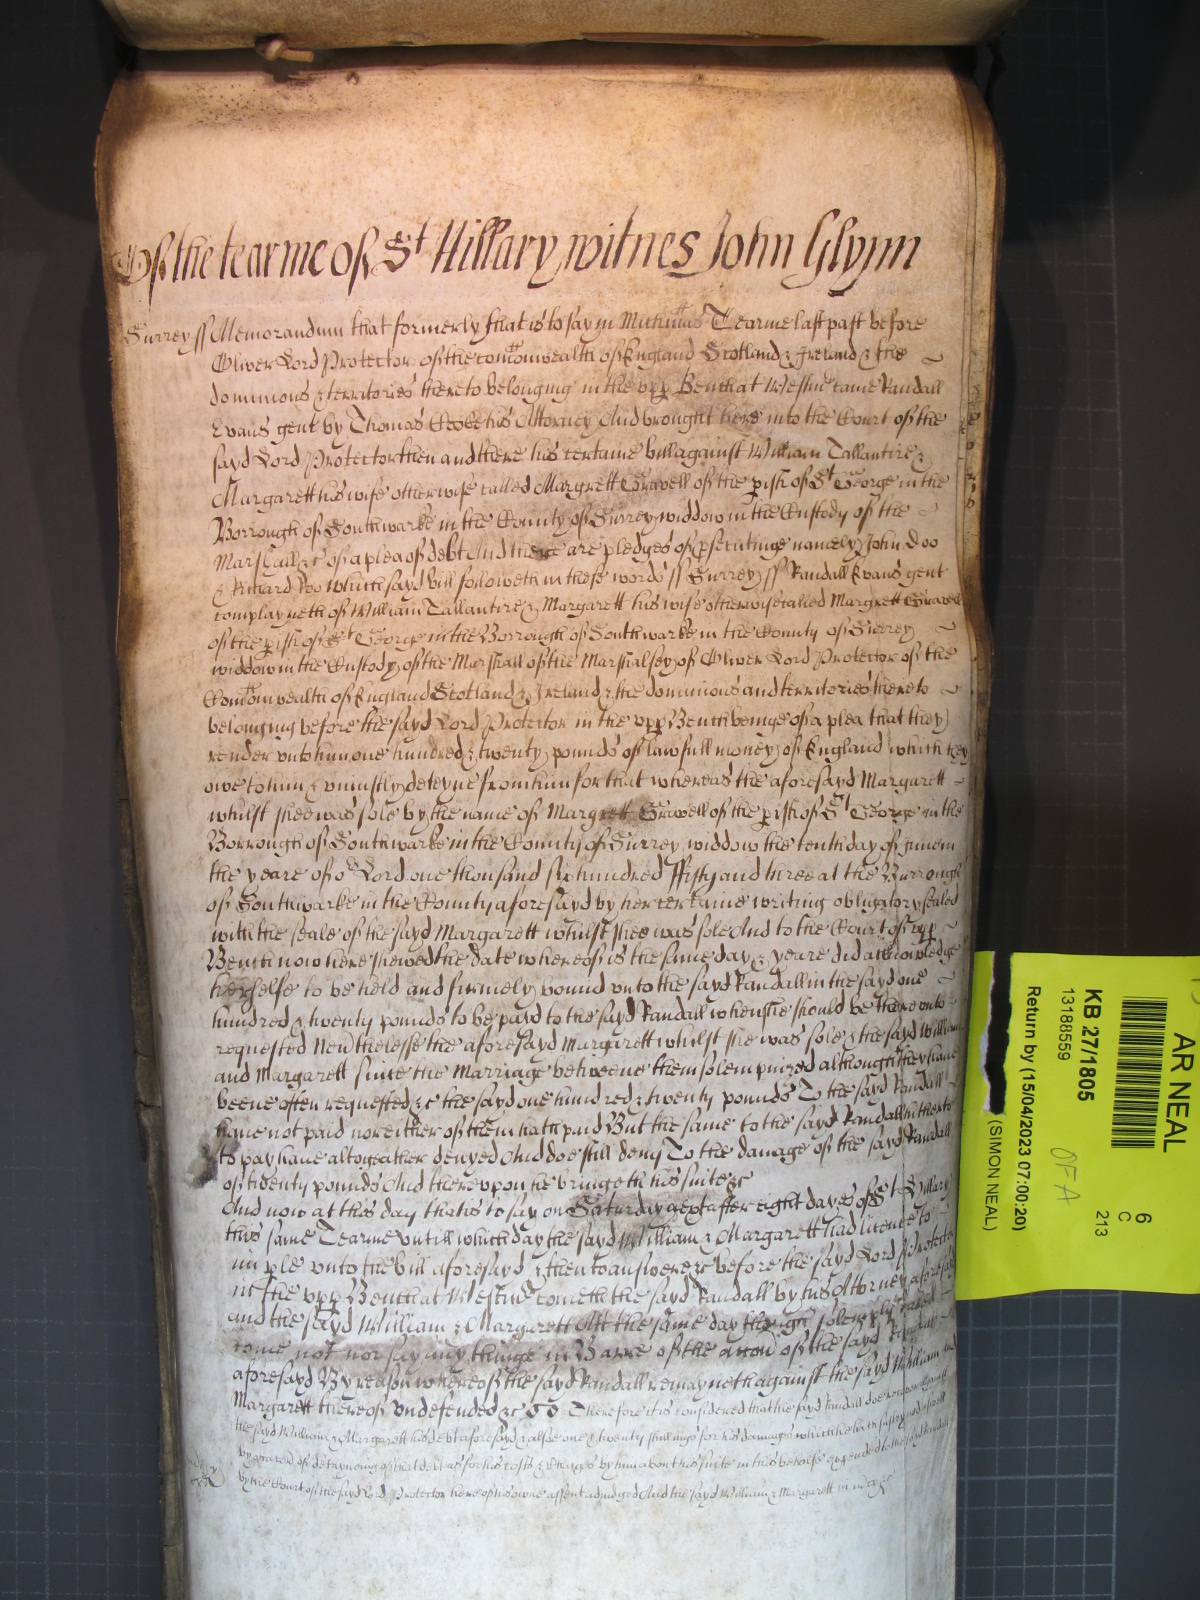 Of the tearme of St Hillary witnes John Glynn
Surrey ss Memorandum that formerly that is to say in Michmas Tearme last past before
Oliver Lord Protector of the comonwealth of England Scotland & Ireland & the
dominions & territories thereto belonging in the upp Bench at Westmr came Randall
Evans gent by Thomas Cooke his Attorney And brought here into the Court of the
sayd Lord Protector then and there his certaine bill against William Tallantire &
Margarett his wife otherwise called Margrett Gravell of the pish of St George in the
Borrough of Southwarke in the County of Surrey widdow in the Custody of the
Marshall &c of a plea of debt And there are pledges of psecutinge namely John Doo
& Richard Roo Which sayd bill followeth in these words ss Surrey ss Randall Evans gent
complayneth of William Tallantire & Margarett his wife otherwise called Margrett Gravell
of the pish of St George in the Borrough of Southwarke in the County of Surrey
widdow in the Custody of the Marshall of the Marshalsey of Oliver Lord Protector of the
Comonwealth of England Scotland & Ireland & the dominions and territories thereto
belonging before the sayd Lord Protector in the upp Bench beinge of a plea that they
render unto him one hundred & twenty pounds of lawfull money of England which they
owe to him & uniustly deteyne from him for that whereas the aforesayd Margarett
whilst shee was sole by the name of Margrett Gravell of the pish of St George in the
Borrough of Southwarke in the County of Surrey widdow the tenth day of June in
the yeare of or Lord one thousand six hundred ffifty and three at the Burrough
of Southwarke in the County aforesayd by her certaine writing obligatory sealed
with the seale of the sayd Margarett whilst shee was sole And to the Court of upp
Bench now here shewed the date whereof is the same day & yeare did acknowledge
herselfe to be held and firmely bound unto the sayd Randall in the sayd one
hundred & twenty pounds to be payd to the sayd Randall when she should be thereunto
requested Neverthelesse the aforesayd Margarett whilst she was sole & the sayd William
and Margarett since the Marriage betweene them solempnized although they have
beene often requested &c the sayd one hundred & twenty pounds To the sayd Randall
have not paid nor either of them hath paid But the same to the sayd Randall hitherto
to pay have altogeather denyed And doe still deny To the damage of the sayd Randall
of twenty pounds And thereupon he bringeth his suite &c
And now at this day that is to say on Saturday next after eight dayes of St Hillary
this same Tearme untill which day the sayd William & Margarett had licence to
imple unto the bill aforesayd & then to answere &c before the sayd Lord Protector
in the upp Bench at Westmr cometh the sayd Randall by his Attorney aforesayd
and the sayd William & Margarett Att the same day though solemply called
come not nor say any thinge in Barre of the accon of the sayd Randall
aforesayd By reason whereof the sayd Randall remayneth against the sayd William and
Margarett thereof undefended &c Therefore it is considered that the sayd Randall doe recover against
the sayd William & Margarett his debt aforesayd & alsoe one & twenty shillings for his damages which he hath susteyned aswell
by reason of detayning of that debt as for his costs & charges by him about his suite in this behalfe expended to the sayd Randall
by the Court of the sayd Lord Protector here of his owne assent adiudged And the sayd William & Margarett in mcy &c
AR NEAL
KB 27/1805
13188559
6
C
213
OFA
Return by (15/04/2023 07:00:20)
(SIMON NEAL)